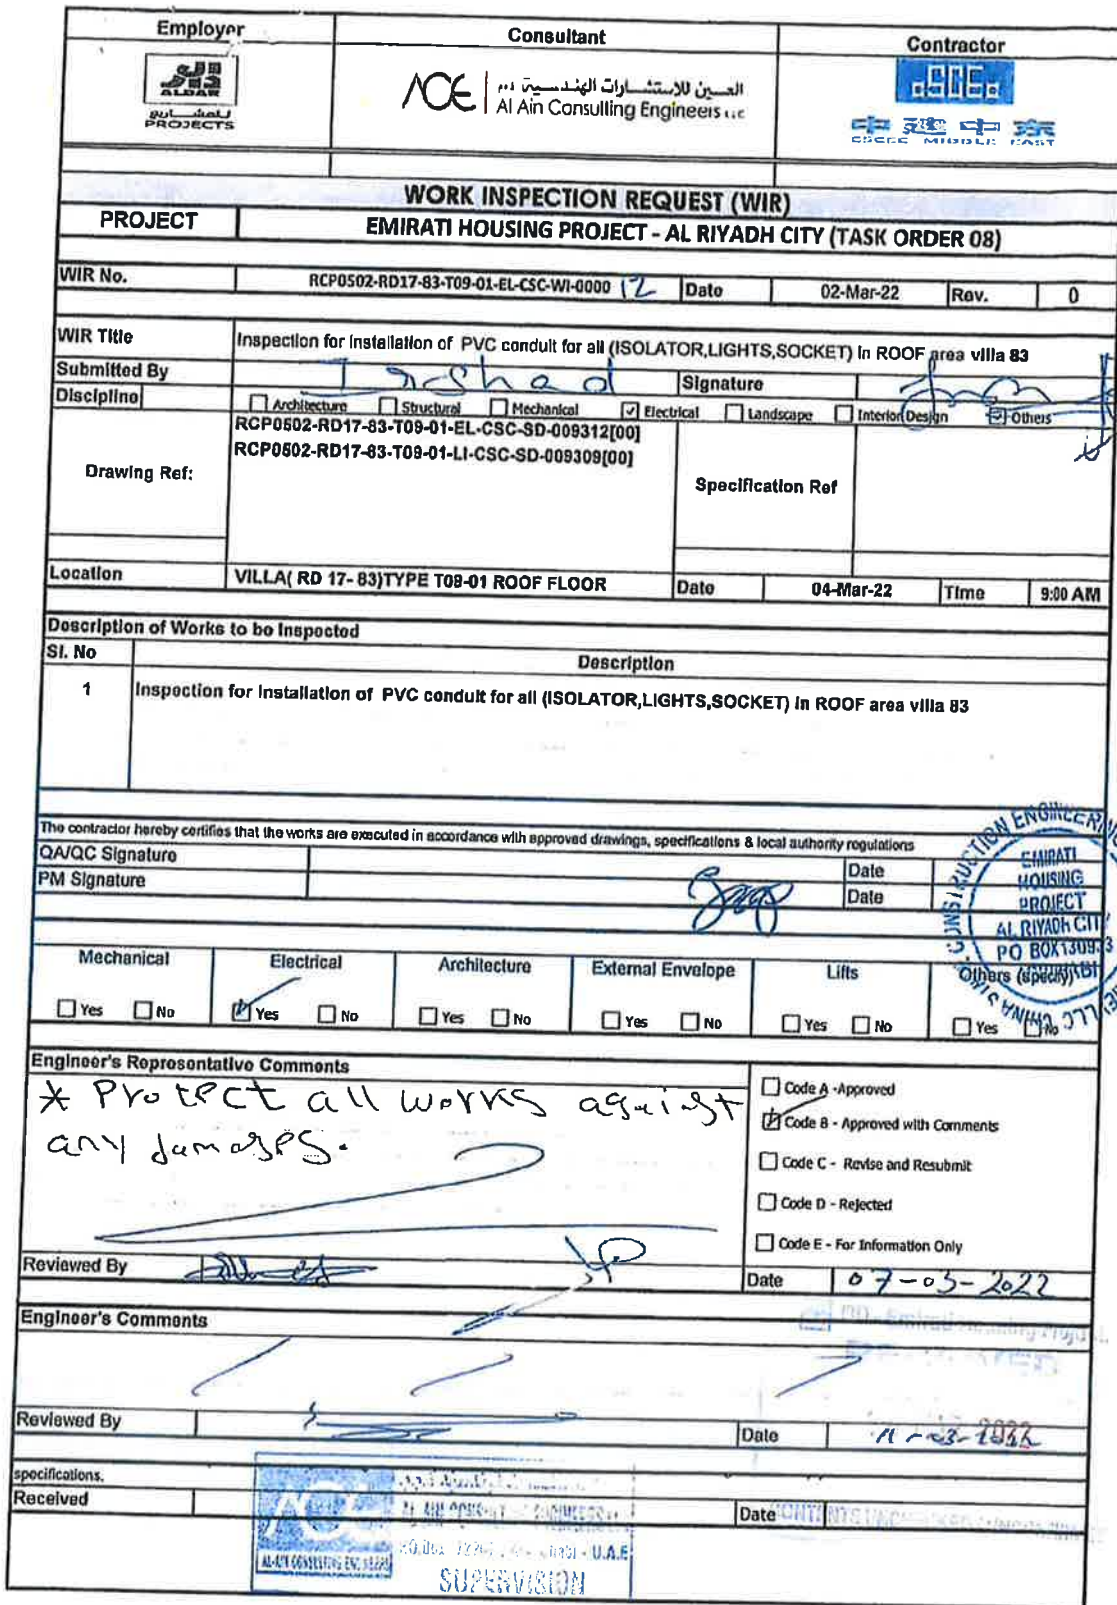 Employer Consultant Contractor
الدار
ALDAR
للمشاريع
PROJECTS
ACE العين للاستشارات الهندسية ذ.م.م
Al Ain Consulting Engineers LLC
CSCEC
CSCEC MIDDLE EAST
WORK INSPECTION REQUEST (WIR)
PROJECT EMIRATI HOUSING PROJECT - AL RIYADH CITY (TASK ORDER 08)
WIR No. RCP0502-RD17-83-T09-01-EL-CSC-WI-0000 12 Date 02-Mar-22 Rev. 0
WIR Title Inspection for Installation of PVC conduit for all (ISOLATOR,LIGHTS,SOCKET) in ROOF area villa 83
Submitted By Irshad Signature
Discipline Architecture Structural Mechanical Electrical Landscape Interior Design Others
Drawing Ref: RCP0502-RD17-83-T09-01-EL-CSC-SD-009312[00]
RCP0502-RD17-83-T09-01-LI-CSC-SD-009309[00]
Specification Ref
Location VILLA( RD 17- 83)TYPE T09-01 ROOF FLOOR Date 04-Mar-22 Time 9:00 AM
Description of Works to be Inspected
Sl. No Description
1 Inspection for Installation of PVC conduit for all (ISOLATOR,LIGHTS,SOCKET) in ROOF area villa 83
The contractor hereby certifies that the works are executed in accordance with approved drawings, specifications & local authority regulations
QA/QC Signature Date
PM Signature Date
CONSTRUCTION ENGINEERING
EMIRATI
HOUSING
PROJECT
AL RIYADH CITY
PO BOX 130973
LLC CHINA
Mechanical Electrical Architecture External Envelope Lifts Others (specify)
Yes No Yes No Yes No Yes No Yes No Yes No
Engineer's Representative Comments
* Protect all works against
any damages.
Code A -Approved
Code B - Approved with Comments
Code C - Revise and Resubmit
Code D - Rejected
Code E - For Information Only
Reviewed By Date 07-03-2022
Engineer's Comments
Reviewed By Date 11-03-2022
specifications.
Received Date
AL-AIN CONSULTING ENGINEERS
U.A.E
SUPERVISION